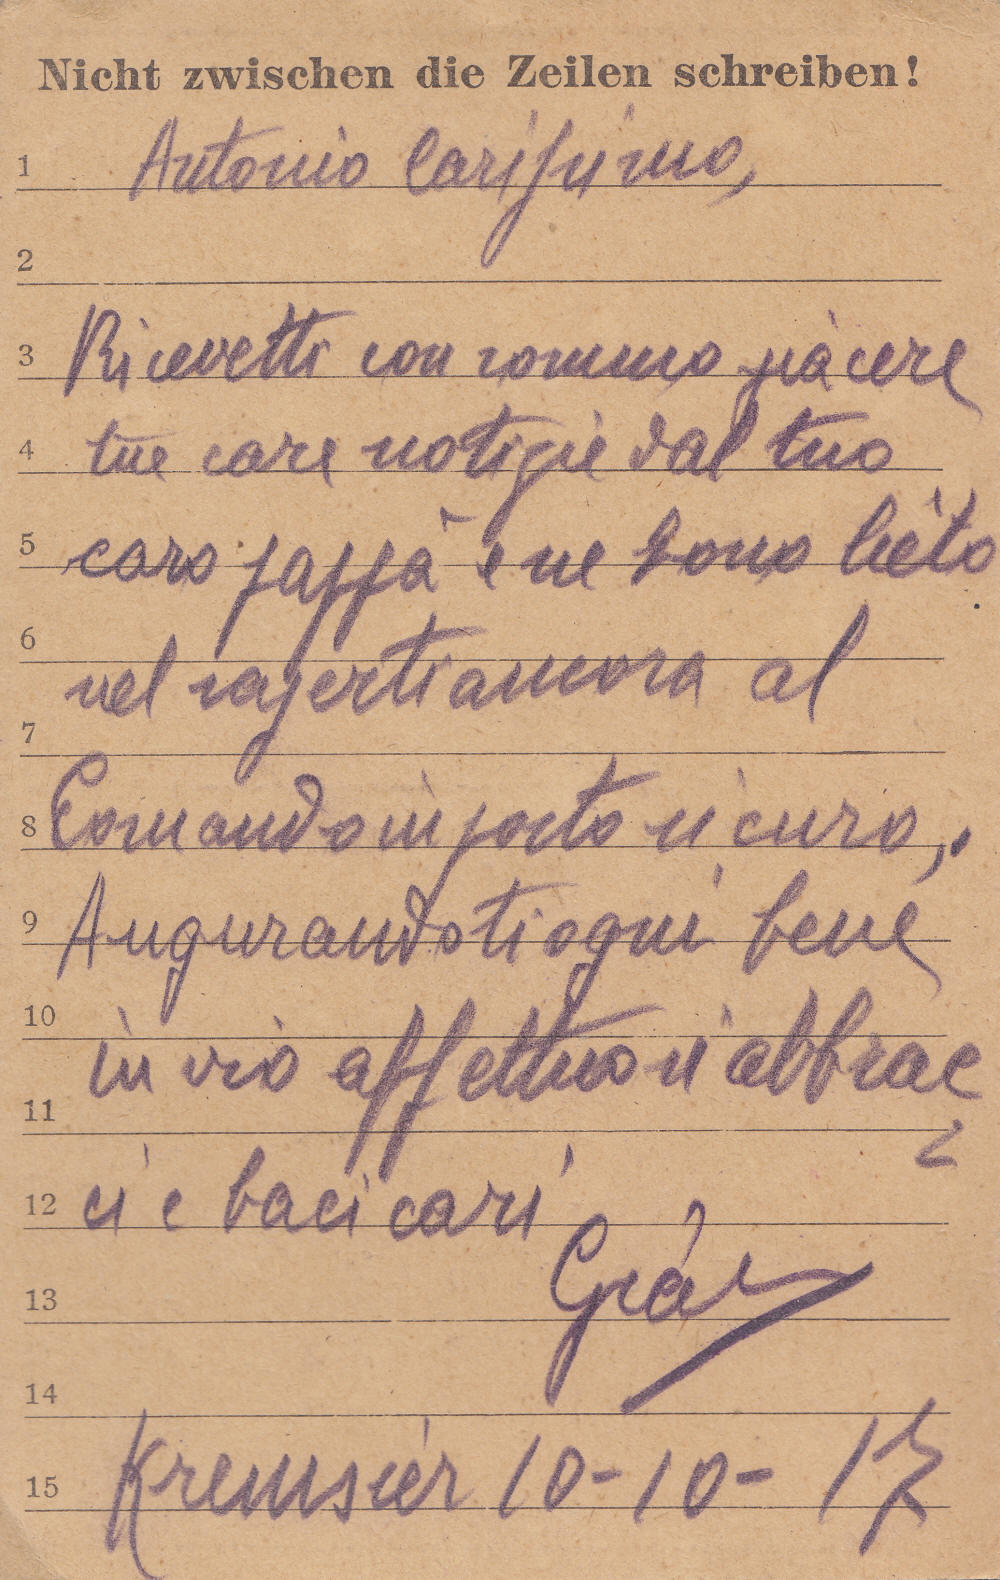 Nicht zwischen die Zeilen schreiben!
1 Antonio Carissimo,
2
3 Ricevetti con sommo piacere
4 tue care notizie dal tuo
5 caro pappà e ne sono lieto
6 nel saperti ancora al
7
8 Comando in posto sicuro,.
9 Augurandoti ogni bene
10 invio affettuosi abbrac
11
12 ci e baci cari
13
14
15 Kremsier 10-10-17